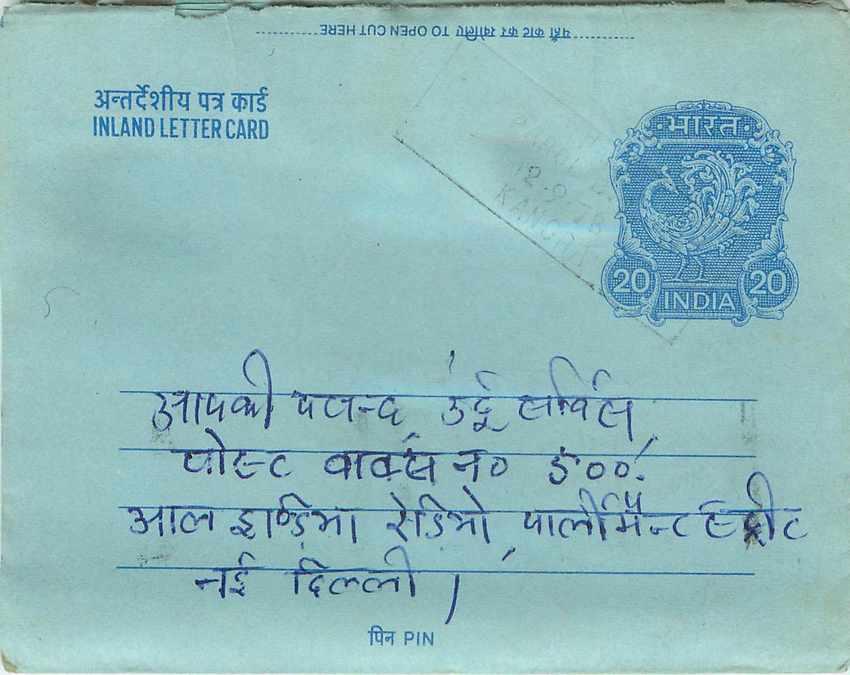 यहाँ काट कर खोलिए TO OPEN CUT HERE
अन्तर्देशीय पत्र कार्ड
INLAND LETTER CARD
भारत
20 20
INDIA
आपकी पसन्द उर्दू सर्विस,
पोस्ट बाक्स न० ५००.
आल इण्डिया रेडियो, पार्लीमैन्ट स्ट्रीट
नई दिल्ली।
पिन PIN